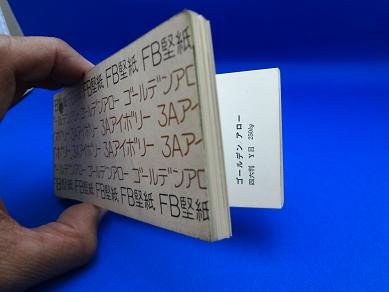 FB堅紙 FB堅紙 FB堅紙
ゴールデンアロー ゴールデンアロ
3Aアイボリー 3Aアイ
ボリー 3Aアイボリー 3Aアイ
ゴールデンアロー ゴールデンアロ
FB堅紙 FB堅紙 FB堅紙 FB堅紙
ゴールデン アロー
四六判 Y目 250kg